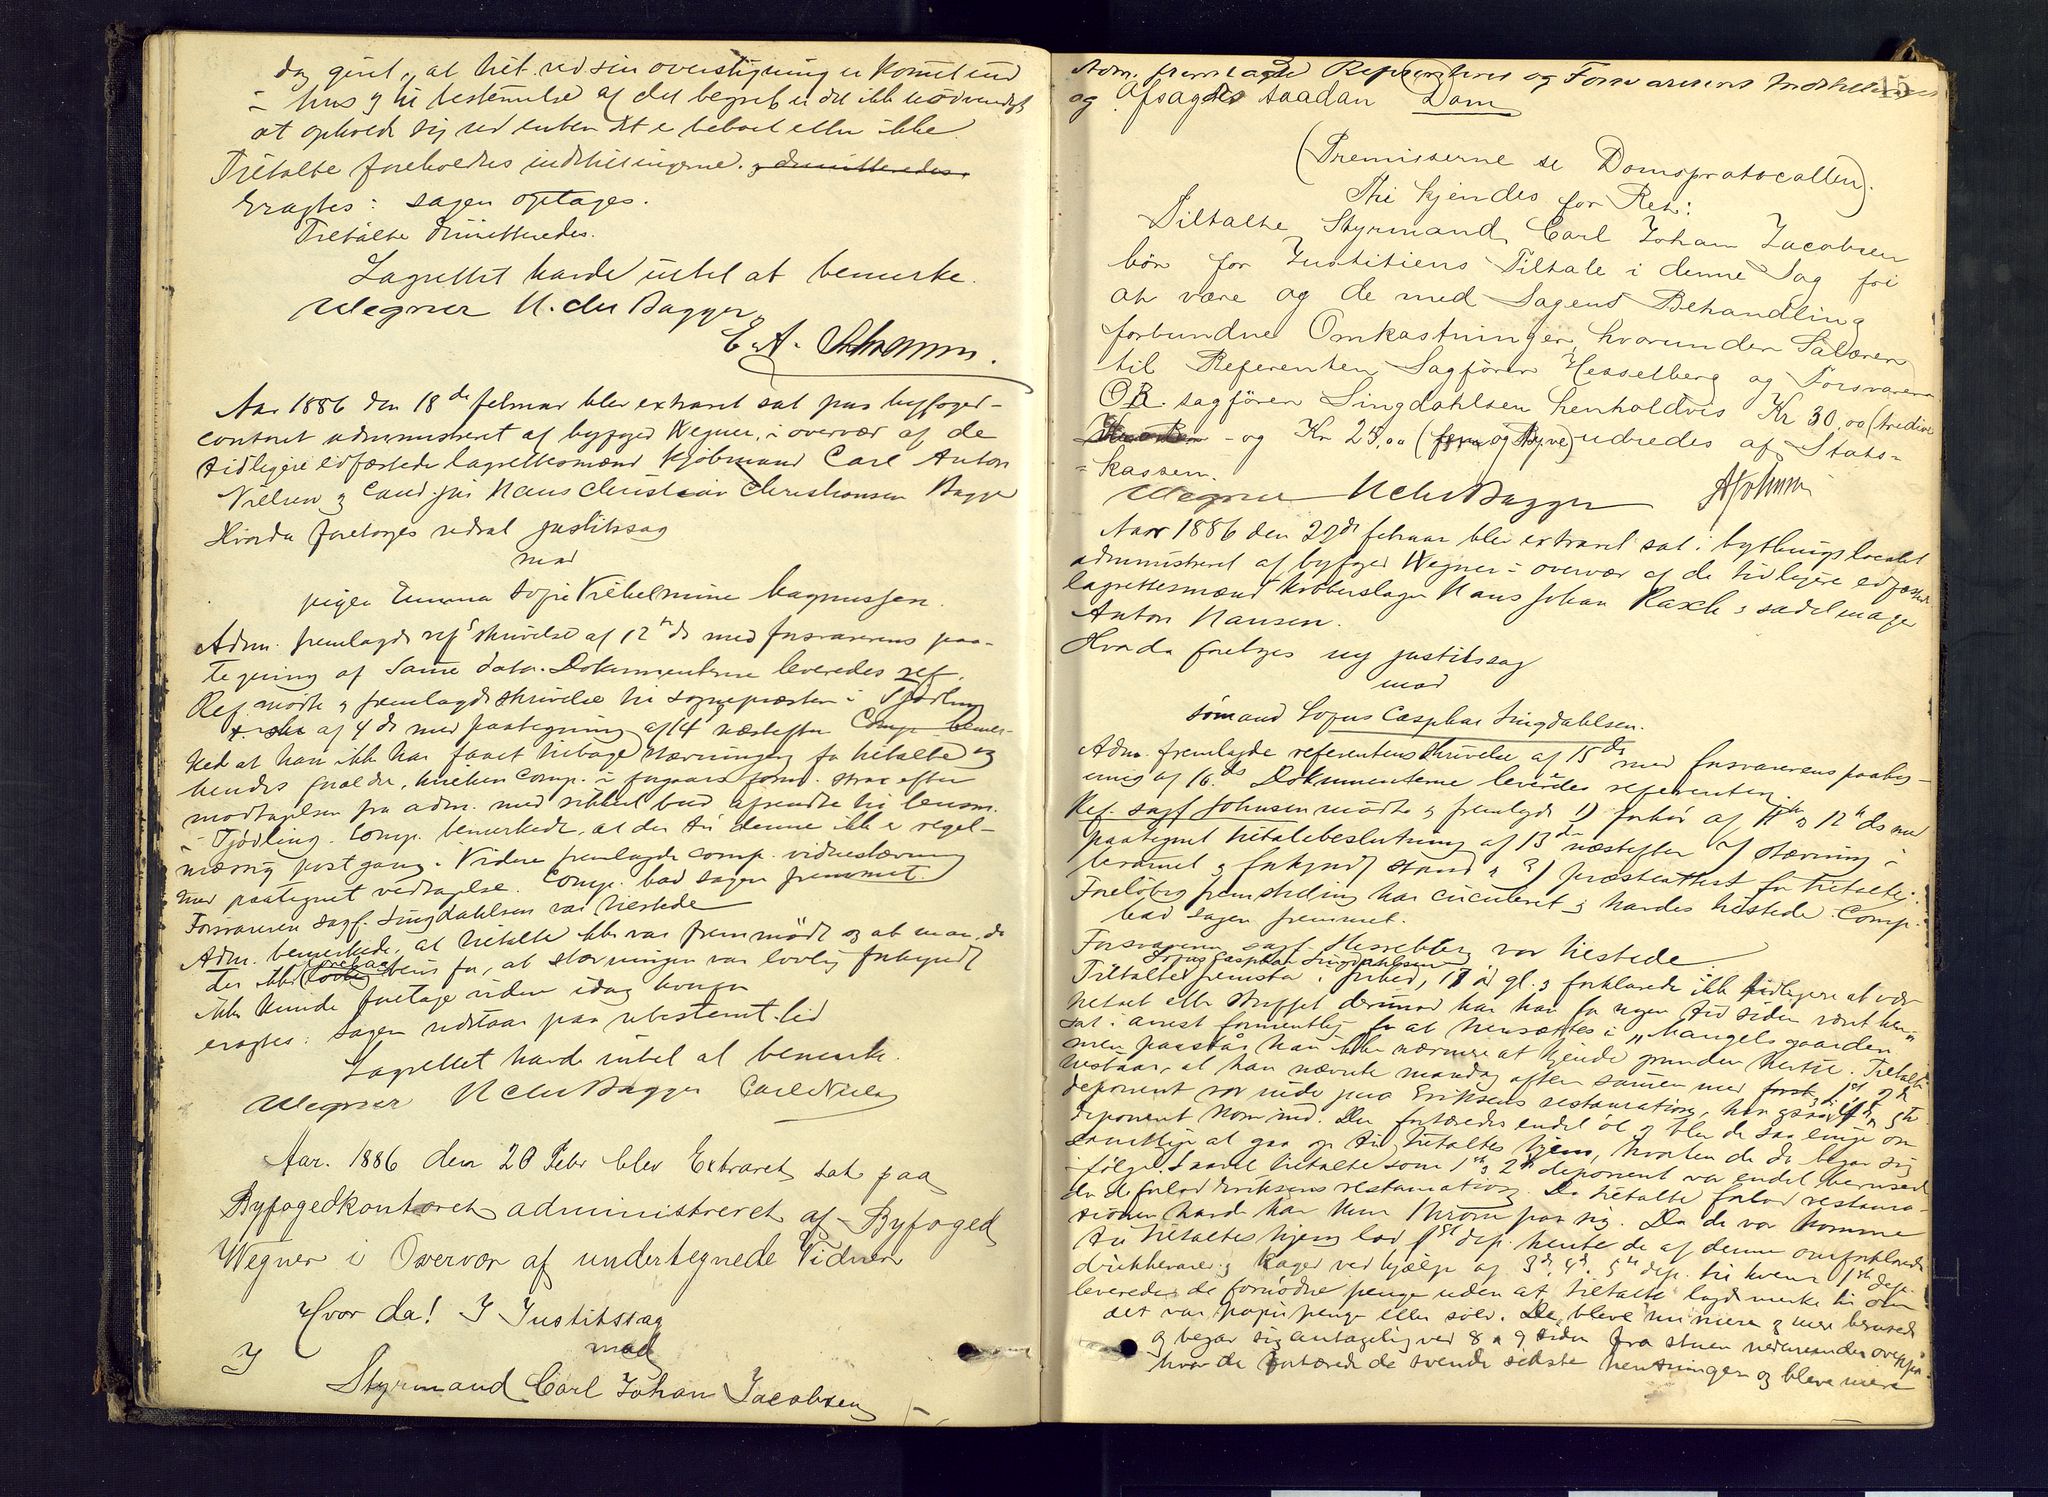 dog givet, at tilt. ved sin overstigning er kommet ind
i hus og til bestemelse af det begreb er det ikke nödvendigt
at opholde sig ved enten det er beboet eller ikke.
Tiltalte foreholdtes indstillingerne. og dimitteredes.
Eragtes: sagen optages.
Tiltalte dimitteredes.
Lagrettet havde intet at bemerke.
Wegner H. Chr Bagger
E. A.
Aar 1886 den 18de februar blev extraret sat paa byfoged-
contoret administreret af byfoged Wegner, i overvær af de
tidligere edfæstede lagrettesmænd Kjöbmand Carl Anton
Nielsen og Cand jur Hans Christian Christiansen Bagger
Hvorda foretoges udsat justitssag
mod
pigen Emma Sofie Vilhelmine Magnussen.
Adm. fremlagde ref's skrivelse af 12te ds med forsvarerens paa-
tegning af samme dato. Dokumenterne leveredes ref.
Ref. mødte og fremlagde skrivelse til sognepræsten i Tjødling
af 4 ds med paategning af 14 næstefter. Comp. bemer-
ked at han ikke har faaet tilbage stævningen for tiltalte og
hendes forældre, hvilken Comp. i forgaars form. strax efter
modtagelsen fra adm. med sikkert bud afsendte til lensm.
i Tjødling. Comp. bemerkede, at der til denne ikke er regel-
mæssig postgang. Videre fremlagde comp. vidnestævning
med paategnet vedtagelse. Comp. bad sagen fremmet.
Forsvareren sagf. Lingdahlsen var tilstede
Adm. bemerkede, at tiltalte ikke var fremmödt og at man, da
der ikke forelaa bevis for, at stævningen var lovlig forkyndt
ikke kunde foretage videre idag hvorfor
eragtes: sagen udstaar paa ubestemt tid
Lagrettet havde intet at bemerke.
Wegner H Chr Bagger Carl Nielsen
Aar. 1886 den 20 Febr blev Extraret sat paa
Byfogedkontoret administreret af Byfoged
Wegner i Overvær af undertegnede Vidner
Hvor da! I Justitssag
mod
I
Styrmand Carl Johan Jacobsen
15
Adm. fremlagde Referentens og Forsvarerens Indstillinger
og Afsagdes saadan Dom
(Premisserne se Domsprotocollen).
Thi kjendes for Ret:
Tiltalte, Styrmand, Carl Johan Jacobsen
bör for Justitiens Tiltale i denne Sag fri
at være og de med Sagens Behandling
forbundne Omkostninger, hvorunder Salærer
til Referenten, Sagförer Hesselberg og Forsvareren
OR. sagförer Lingdahlsen henholdvis Kr 30.00 (tredive
Kroner - og Kr 25,00 (fem og tyve) udredes af Stats-
kassen.
Wegner H Chr Bagger
Aar 1886 den 22de februar blev extraret sat i bythingslocalet
administreret af byfoged Wegner i overvær af de tidligere edfæstede
lagrettesmænd Kobberslager Hans Johan Rasch og sadelmager
Anton Hansen.
Hvorda foretoges ny justitssag
mod
sömand Lofus Casphar Lingdahlsen.
Adm. fremlagde referentens skrivelse af 15de med forsvarerens paateg-
ning af 16. ds Dokumenterne leveredes referenten.
Ref. sagf Johnsen mødte og fremlagde 1) forhör af 11te og 12te ds med
paategnet tiltalebeslutning af 13de næstefter 2) stævning i
lovmel og forkyndt stand og 3) præsteattest for tiltalte.
Foreløbig fremstilling har circuleret og havdes tilstede. Comp.
bad sagen fremmet.
Forsvareren sagf. Hesselberg var tilstede.
Lofus Casphar Lingdahlsen
Tiltalte fremsto i frihed, 17 år gl. og forklarede ikke tidligere at være
tiltalt eller straffet derimod har han for nogen tid siden været hen-
sat i arrest formentlig for at hensættes i "Mangelsgaarden"
men paastår han ikke nærmere at kjende grunden hertil. Tiltalte
tilstaar, at han nævnte mandag aften sammen med først 1st og 2de
deponent var inde paa Eriksens restauration, hvor også 3de, 4de, 5te
deponent kom ind. Der fortæredes endel öl og blev de saa enige om
samtlige at gaa op til tiltaltes hjem, hvorhen de da begav sig
i følge. Saavel tiltalte som 1ste og 2den deponent var endel beruset
da de forlod Eriksens restauration. Da tiltalte forlod restaura-
tionen havde han kun 1 krone paa sig. Da de var komne
til tiltaltes hjem lod 1ste dep. hente de af denne omforklarede
drikkevarer og kager ved hjælp af 3de, 4de, 5te dep. til hvem 1ste dep.
leverede de fornødne penge uden at tiltalte lagde merke til om
det var papirpenge eller sølv. De bleve mere og mere beruset
og begav sig antagelig ved 8 a 9 tiden fra stuen nedenunder ovenpå
hvor de fortærede de svende sidste hentninger og bleve mere